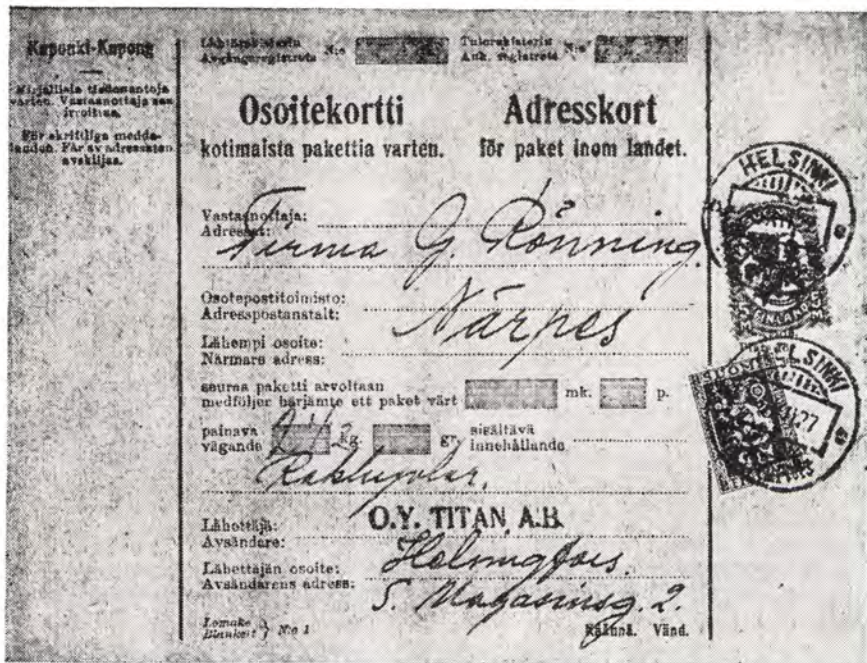 Kuponki-Kupong
Kirjallisia tiedonantoja
varten. Vastaanottaja saa
irroittaa.
För skriftliga medde-
landen. Får av adressaten
avskiljas.
Lähtörekisterin
Avgångsregistrets N:o
Tulorekisterin
Ank. registrets N:o
Osoitekortti Adresskort
kotimaista pakettia varten. för paket inom landet.
Vastaanottaja:
Adressat:
Firma G. Rönning.
Osotepostitoimisto:
Adresspostanstalt:
Närpes
Lähempi osoite:
Närmare adress:
seuraa paketti arvoltaan
medföljer härjämte ett paket värt mk. p.
painava
vägande kg. gr.
sisältävä
innehållande
Lähettäjä:
Avsändare:
O.Y. TITAN A.B.
Helsingfors.
Lähettäjän osoite:
Avsändarens adress:
S. Magasinsg. 2.
Lomake
Blankett } N:o 1
Käännä. Vänd.
HELSINKI
HELSINKI